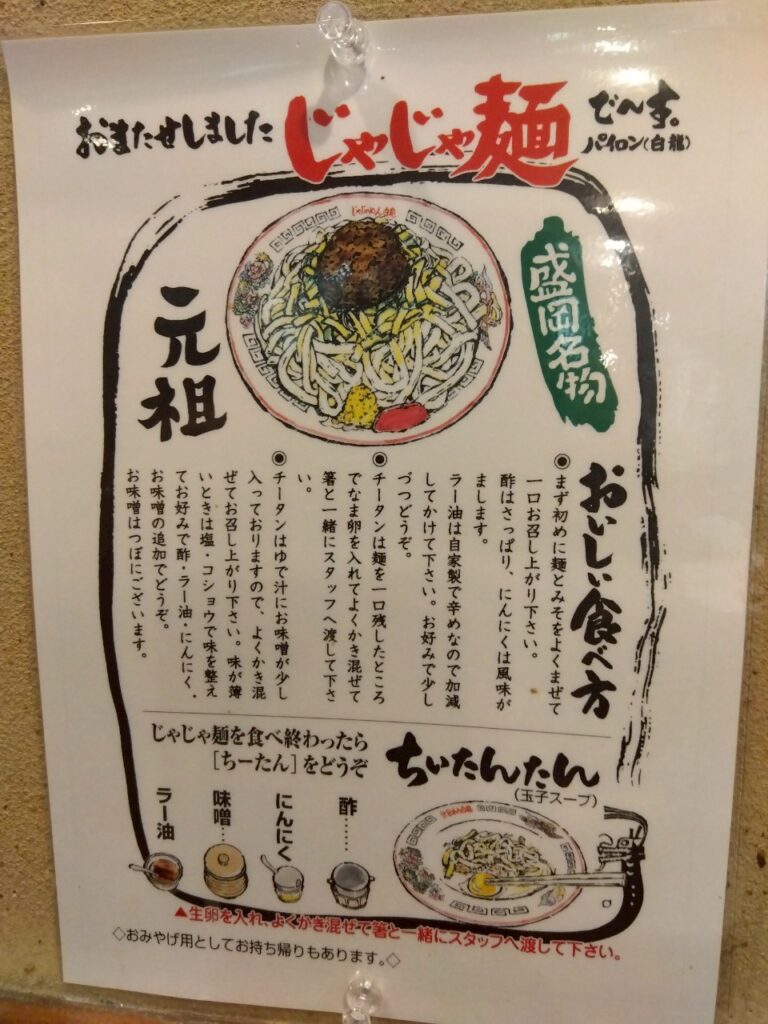 おまたせしました じゃじゃ麺 で〜す。
パイロン(白龍)
盛岡名物
元祖
おいしい食べ方
◉まず初めに麺とみそをよくまぜて
一口お召し上がり下さい。
酢はさっぱり、にんにくは風味が
まします。
ラー油は自家製で辛めなので加減
してかけて下さい。お好みで少し
づつどうぞ。
◉チータンは麺を一口残したところ
でなま卵を入れてよくかき混ぜて
箸と一緒にスタッフへ渡して下さ
い。
◉チータンはゆで汁にお味噌が少し
入っておりますので、よくかき混
ぜてお召し上がり下さい。味が薄
いときは塩・コショウで味を整え
てお好みで酢・ラー油・にんにく、
お味噌の追加でどうぞ。
お味噌はつぼにございます。
じゃじゃ麺を食べ終わったら
[ちーたん]をどうぞ
ちいたんたん
(玉子スープ)
酢……
にんにく
味噌…
ラー油
▲生卵を入れ、よくかき混ぜて箸と一緒にスタッフへ渡して下さい。
◇おみやげ用としてお持ち帰りもあります。◇